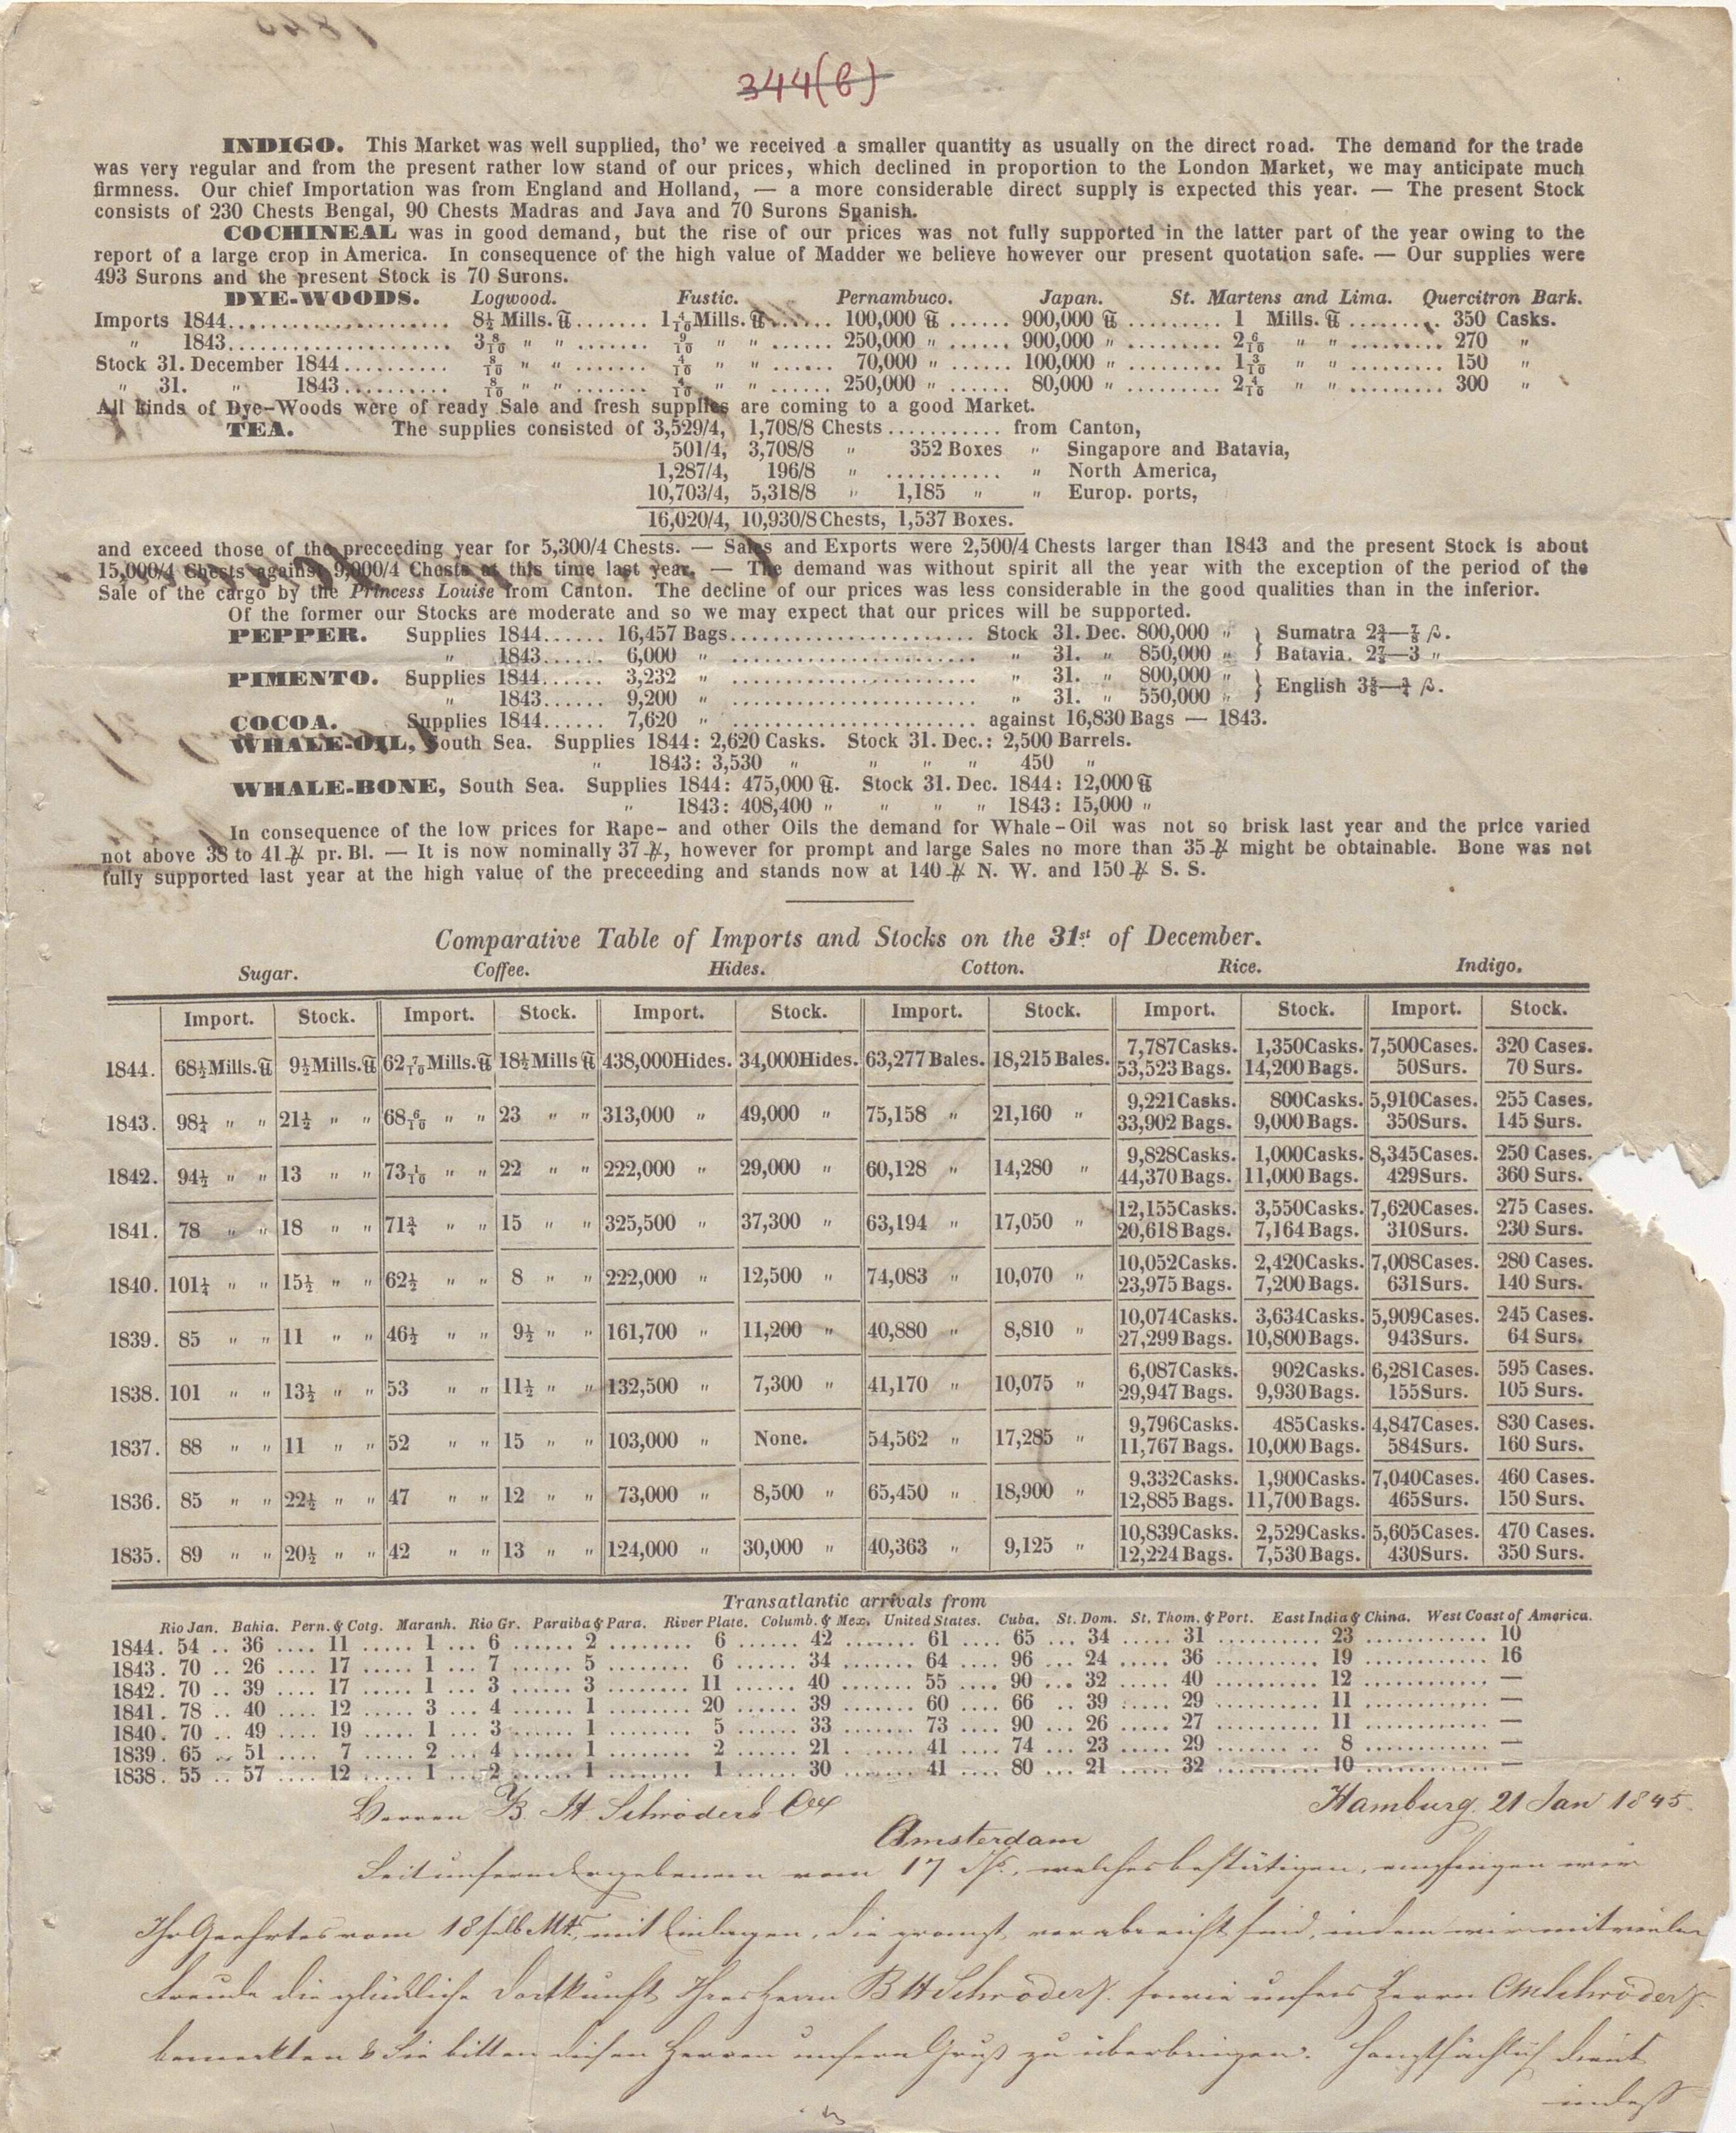 344(6)
INDIGO. This Market was well supplied, tho' we received a smaller quantity as usually on the direct road. The demand for the trade
was very regular and from the present rather low stand of our prices, which declined in proportion to the London Market, we may anticipate much
firmness. Our chief Importation was from England and Holland, — a more considerable direct supply is expected this year. — The present Stock
consists of 230 Chests Bengal, 90 Chests Madras and Java and 70 Surons Spanish.
COCHINEAL was in good demand, but the rise of our prices was not fully supported in the latter part of the year owing to the
report of a large crop in America. In consequence of the high value of Madder we believe however our present quotation safe. — Our supplies were
493 Surons and the present Stock is 70 Surons.
DYE-WOODS. Logwood. Fustic. Pernambuco. Japan. St. Martens and Lima. Quercitron Bark.
Imports 1844.................... 8½ Mills. ℔....... 1 4/10 Mills. ℔...... 100,000 ℔ ...... 900,000 ℔ ......... 1 Mills. ℔ ......... 350 Casks.
" 1843.................... 3 8/10 " " ....... 9/10 " " ...... 250,000 " ...... 900,000 " ......... 2 6/10 " " ......... 270 "
Stock 31. December 1844.......... 8/10 " " ....... 4/10 " " ...... 70,000 " ...... 100,000 " ......... 1 3/10 " " ......... 150 "
" 31. " 1843.......... 8/10 " " ....... 4/10 " " ...... 250,000 " ...... 80,000 " ......... 2 4/10 " " ......... 300 "
All kinds of Dye-Woods were of ready Sale and fresh supplies are coming to a good Market.
TEA. The supplies consisted of 3,529/4, 1,708/8 Chests ........... from Canton,
501/4, 3,708/8 " 352 Boxes " Singapore and Batavia,
1,287/4, 196/8 " ........... " North America,
10,703/4, 5,318/8 " 1,185 " " Europ. ports,
16,020/4, 10,930/8 Chests, 1,537 Boxes.
and exceed those of the preceeding year for 5,300/4 Chests. — Sales and Exports were 2,500/4 Chests larger than 1843 and the present Stock is about
15,000/4 Chests against 9,000/4 Chests at this time last year. — The demand was without spirit all the year with the exception of the period of the
Sale of the cargo by the Princess Louise from Canton. The decline of our prices was less considerable in the good qualities than in the inferior.
Of the former our Stocks are moderate and so we may expect that our prices will be supported.
PEPPER. Supplies 1844...... 16,457 Bags........................ Stock 31. Dec. 800,000 " } Sumatra 2¾—⅞ ß.
" 1843...... 6,000 " ........................ " 31. " 850,000 " } Batavia. 2⅞—3 "
PIMENTO. Supplies 1844...... 3,232 " ........................ " 31. " 800,000 " } English 3⅝—¾ ß.
" 1843...... 9,200 " ........................ " 31. " 550,000 " }
COCOA. Supplies 1844...... 7,620 " ........................ against 16,830 Bags — 1843.
WHALE-OIL, South Sea. Supplies 1844: 2,620 Casks. Stock 31. Dec.: 2,500 Barrels.
" 1843: 3,530 " " " " 450 "
WHALE-BONE, South Sea. Supplies 1844: 475,000 ℔. Stock 31. Dec. 1844: 12,000 ℔
" 1843: 408,400 " " " " 1843: 15,000 "
In consequence of the low prices for Rape- and other Oils the demand for Whale-Oil was not so brisk last year and the price varied
not above 38 to 41 ℳ pr. Bl. — It is now nominally 37 ℳ, however for prompt and large Sales no more than 35 ℳ might be obtainable. Bone was not
fully supported last year at the high value of the preceeding and stands now at 140 ℳ N. W. and 150 ℳ S. S.
Comparative Table of Imports and Stocks on the 31st of December.
Sugar. Coffee. Hides. Cotton. Rice. Indigo.
Import. Stock. Import. Stock. Import. Stock. Import. Stock. Import. Stock. Import. Stock.
1844. 68½ Mills. ℔ 9½ Mills. ℔ 62 7/10 Mills. ℔ 18½ Mills ℔ 438,000 Hides. 34,000 Hides. 63,277 Bales. 18,215 Bales. 7,787 Casks. 1,350 Casks. 7,500 Cases. 320 Cases.
53,523 Bags. 14,200 Bags. 50 Surs. 70 Surs.
1843. 98¼ " " 21½ " " 68 6/10 " " 23 " " 313,000 " 49,000 " 75,158 " 21,160 " 9,221 Casks. 800 Casks. 5,910 Cases. 255 Cases.
33,902 Bags. 9,000 Bags. 350 Surs. 145 Surs.
1842. 94½ " " 13 " " 73 1/10 " " 22 " " 222,000 " 29,000 " 60,128 " 14,280 " 9,828 Casks. 1,000 Casks. 8,345 Cases. 250 Cases.
44,370 Bags. 11,000 Bags. 429 Surs. 360 Surs.
1841. 78 " " 18 " " 71¾ " " 15 " " 325,500 " 37,300 " 63,194 " 17,050 " 12,155 Casks. 3,550 Casks. 7,620 Cases. 275 Cases.
20,618 Bags. 7,164 Bags. 310 Surs. 230 Surs.
1840. 101¼ " " 15½ " " 62½ " " 8 " " 222,000 " 12,500 " 74,083 " 10,070 " 10,052 Casks. 2,420 Casks. 7,008 Cases. 280 Cases.
23,975 Bags. 7,200 Bags. 631 Surs. 140 Surs.
1839. 85 " " 11 " " 46½ " " 9½ " " 161,700 " 11,200 " 40,880 " 8,810 " 10,074 Casks. 3,634 Casks. 5,909 Cases. 245 Cases.
27,299 Bags. 10,800 Bags. 943 Surs. 64 Surs.
1838. 101 " " 13½ " " 53 " " 11½ " " 132,500 " 7,300 " 41,170 " 10,075 " 6,087 Casks. 902 Casks. 6,281 Cases. 595 Cases.
29,947 Bags. 9,930 Bags. 155 Surs. 105 Surs.
1837. 88 " " 11 " " 52 " " 15 " " 103,000 " None. 54,562 " 17,285 " 9,796 Casks. 485 Casks. 4,847 Cases. 830 Cases.
11,767 Bags. 10,000 Bags. 584 Surs. 160 Surs.
1836. 85 " " 22½ " " 47 " " 12 " " 73,000 " 8,500 " 65,450 " 18,900 " 9,332 Casks. 1,900 Casks. 7,040 Cases. 460 Cases.
12,885 Bags. 11,700 Bags. 465 Surs. 150 Surs.
1835. 89 " " 20½ " " 42 " " 13 " " 124,000 " 30,000 " 40,363 " 9,125 " 10,839 Casks. 2,529 Casks. 5,605 Cases. 470 Cases.
12,224 Bags. 7,530 Bags. 430 Surs. 350 Surs.
Transatlantic arrivals from
Rio Jan. Bahia. Pern. & Cotg. Maranh. Rio Gr. Paraiba & Para. River Plate. Columb. & Mex. United States. Cuba. St. Dom. St. Thom. & Port. East India & China. West Coast of America.
1844. 54 .. 36 .... 11 ...... 1 ... 6 ...... 2 ......... 6 ...... 42 ....... 61 .... 65 ... 34 ..... 31 .......... 23 ............ 10
1843. 70 .. 26 .... 17 ...... 1 ... 7 ...... 5 ......... 6 ...... 34 ....... 64 .... 96 ... 24 ..... 36 .......... 19 ............ 16
1842. 70 .. 39 .... 17 ...... 1 ... 3 ...... 3 ......... 11 ...... 40 ....... 55 .... 90 ... 32 ..... 40 .......... 12 ............ —
1841. 78 .. 40 .... 12 ...... 3 ... 4 ...... 1 ......... 20 ...... 39 ....... 60 .... 66 .. 39 ..... 29 .......... 11 ............ —
1840. 70 .. 49 .... 19 ...... 1 ... 3 ...... 1 ......... 5 ...... 33 ....... 73 .... 90 ... 26 ..... 27 .......... 11 ............ —
1839. 65 .. 51 .... 7 ...... 2 ... 4 ...... 1 ......... 2 ...... 21 ....... 41 .... 74 ... 23 ..... 29 .......... 8 ............ —
1838. 55 .. 57 .... 12 ...... 1 ... 2 ...... 1 ......... 1 ...... 30 ....... 41 .... 80 ... 21 ..... 32 .......... 10 ............ —
Herren B. H. Schröder & Co Hamburg, 21 Jan 1845.
Amsterdam
Seit unserm Ergebenen vom 17 ds., welches bestätigen, empfingen wir
Ihr Geehrtes vom 18 selb Mts, mit Einlagen, die prompt verabreicht sind, indem wir mit vieler
Freude die glückliche Dortkunft Ihres Herrn B H Schröder jr. sowie unsers Herrn Schröder jr.
bemerkten & Sie bitten diesen Herren unsern Gruß zu überbringen. Hauptsächlich dient
indeß